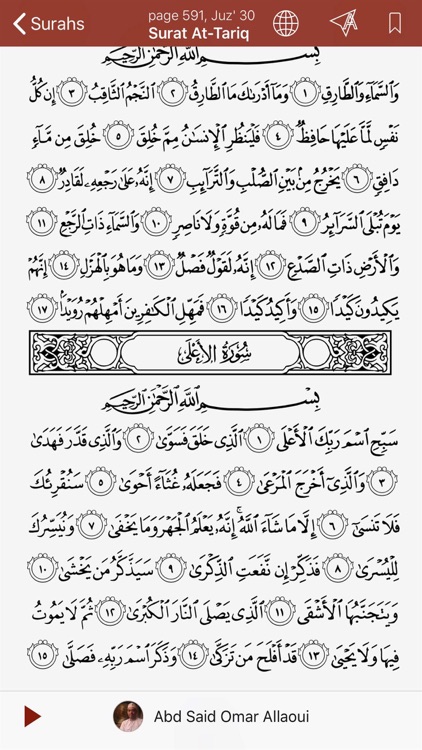 Surahs
page 591, Juz' 30
Surat At-Tariq
بِسْمِ ٱللَّهِ ٱلرَّحْمَٰنِ ٱلرَّحِيمِ
وَٱلسَّمَآءِ وَٱلطَّارِقِ ١ وَمَآ أَدْرَىٰكَ مَا ٱلطَّارِقُ ٢ ٱلنَّجْمُ ٱلثَّاقِبُ ٣ إِن كُلُّ
نَفْسٍ لَّمَّا عَلَيْهَا حَافِظٌ ٤ فَلْيَنظُرِ ٱلْإِنسَٰنُ مِمَّ خُلِقَ ٥ خُلِقَ مِن مَّآءٍ
دَافِقٍ ٦ يَخْرُجُ مِنۢ بَيْنِ ٱلصُّلْبِ وَٱلتَّرَآئِبِ ٧ إِنَّهُۥ عَلَىٰ رَجْعِهِۦ لَقَادِرٌ ٨
يَوْمَ تُبْلَى ٱلسَّرَآئِرُ ٩ فَمَا لَهُۥ مِن قُوَّةٍ وَلَا نَاصِرٍ ١٠ وَٱلسَّمَآءِ ذَاتِ ٱلرَّجْعِ ١١
وَٱلْأَرْضِ ذَاتِ ٱلصَّدْعِ ١٢ إِنَّهُۥ لَقَوْلٌ فَصْلٌ ١٣ وَمَا هُوَ بِٱلْهَزْلِ ١٤ إِنَّهُمْ
يَكِيدُونَ كَيْدًا ١٥ وَأَكِيدُ كَيْدًا ١٦ فَمَهِّلِ ٱلْكَٰفِرِينَ أَمْهِلْهُمْ رُوَيْدًۢا ١٧
سُورَةُ الأَعْلَى
بِسْمِ ٱللَّهِ ٱلرَّحْمَٰنِ ٱلرَّحِيمِ
سَبِّحِ ٱسْمَ رَبِّكَ ٱلْأَعْلَى ١ ٱلَّذِى خَلَقَ فَسَوَّىٰ ٢ وَٱلَّذِى قَدَّرَ فَهَدَىٰ
٣ وَٱلَّذِىٓ أَخْرَجَ ٱلْمَرْعَىٰ ٤ فَجَعَلَهُۥ غُثَآءً أَحْوَىٰ ٥ سَنُقْرِئُكَ
فَلَا تَنسَىٰٓ ٦ إِلَّا مَا شَآءَ ٱللَّهُ ۚ إِنَّهُۥ يَعْلَمُ ٱلْجَهْرَ وَمَا يَخْفَىٰ ٧ وَنُيَسِّرُكَ
لِلْيُسْرَىٰ ٨ فَذَكِّرْ إِن نَّفَعَتِ ٱلذِّكْرَىٰ ٩ سَيَذَّكَّرُ مَن يَخْشَىٰ ١٠
وَيَتَجَنَّبُهَا ٱلْأَشْقَى ١١ ٱلَّذِى يَصْلَى ٱلنَّارَ ٱلْكُبْرَىٰ ١٢ ثُمَّ لَا يَمُوتُ
فِيهَا وَلَا يَحْيَىٰ ١٣ قَدْ أَفْلَحَ مَن تَزَكَّىٰ ١٤ وَذَكَرَ ٱسْمَ رَبِّهِۦ فَصَلَّىٰ ١٥
Abd Said Omar Allaoui